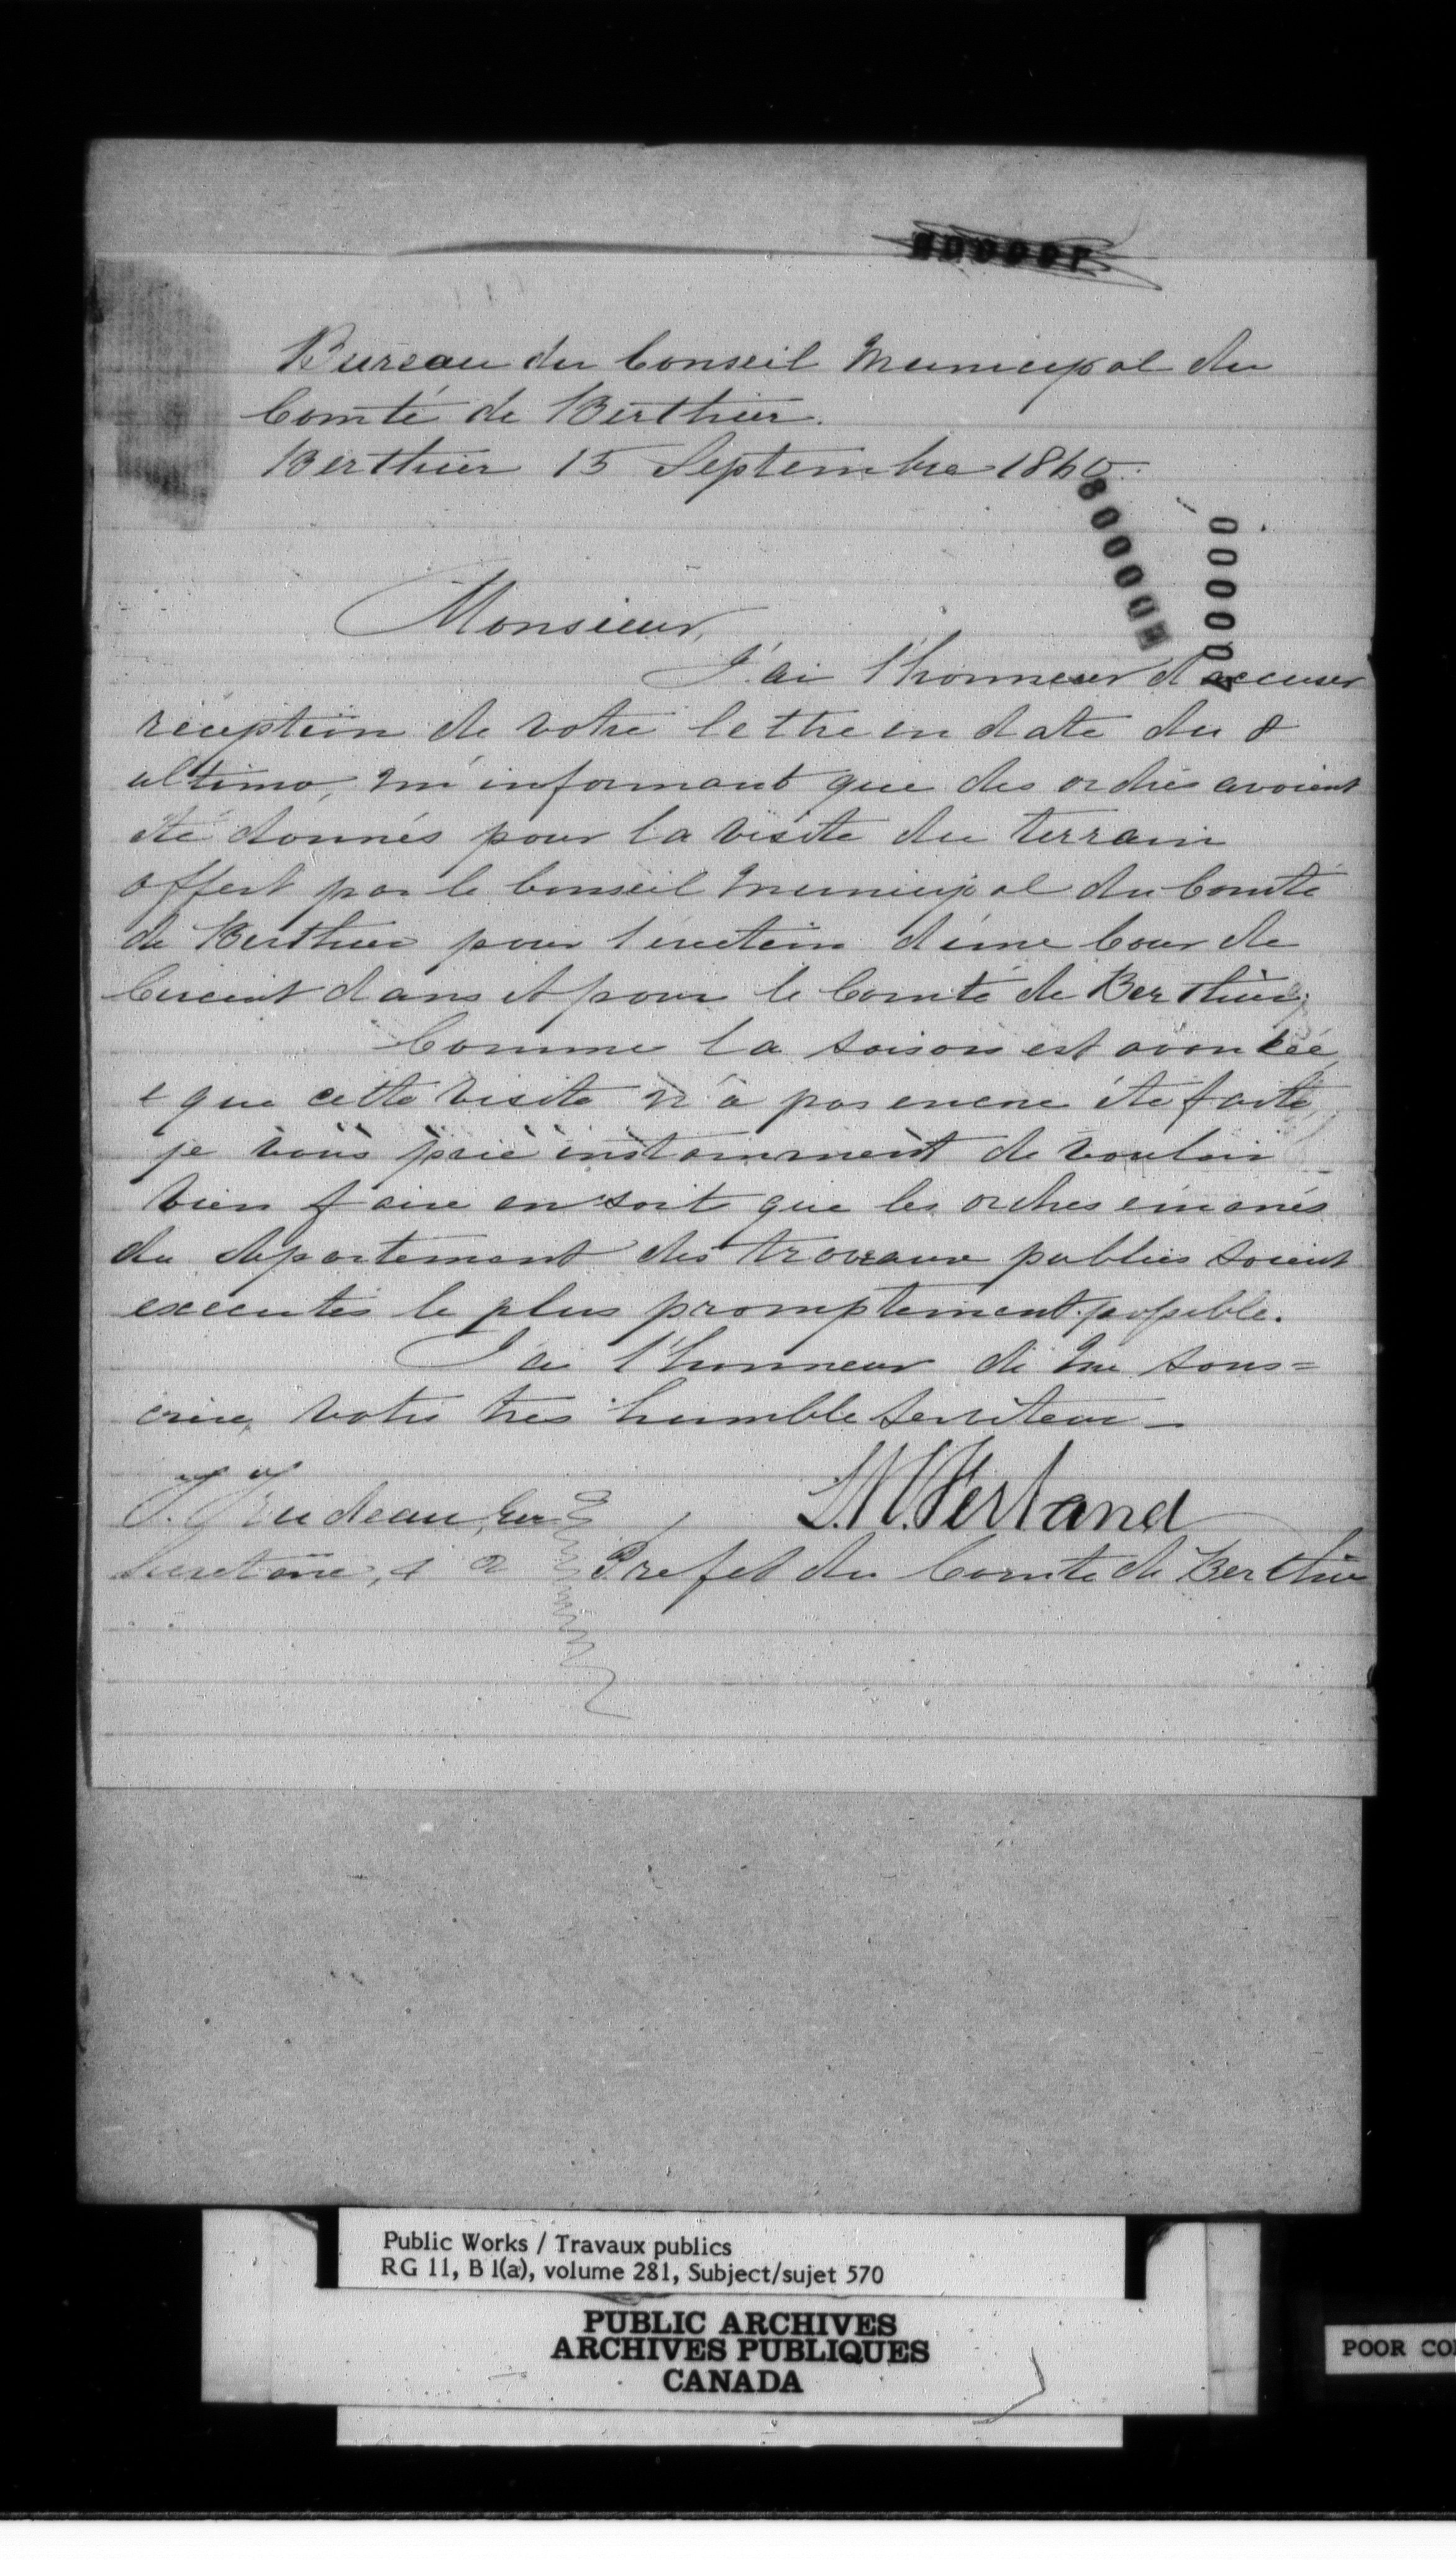 Bureau du Conseil Municipal du
Comté de Berthier.
Berthier 15 Septembre 1860.
Monsieur,
J'ai l'honneur d'accuser
réception de votre lettre en date du 8
ultimo, m'informant que des ordres avoient
été donnés pour la visite du terrain
offert par le Conseil Municipal du Comté
de Berthier pour l'érection d'une Cour de
Circuit dans et pour le Comté de Berthier,
Comme la saison est avancée,
& que cette visite n'a pas encore été faite,
je vous prie instamment de vouloir
bien faire en sorte que les ordres émanés
du département des travaux publics soient
exécutés le plus promptement possible.
J'ai l'honneur de me sous=
crire, votre très humble serviteur_
L.M. Ferland
J. Trudeau, Ecr
Secretaire, & a
Prefet du Comté de Berthier
00000
Public Works / Travaux publics
RG 11, B 1(a), volume 281, Subject/sujet 570
PUBLIC ARCHIVES
ARCHIVES PUBLIQUES
CANADA
POOR CO